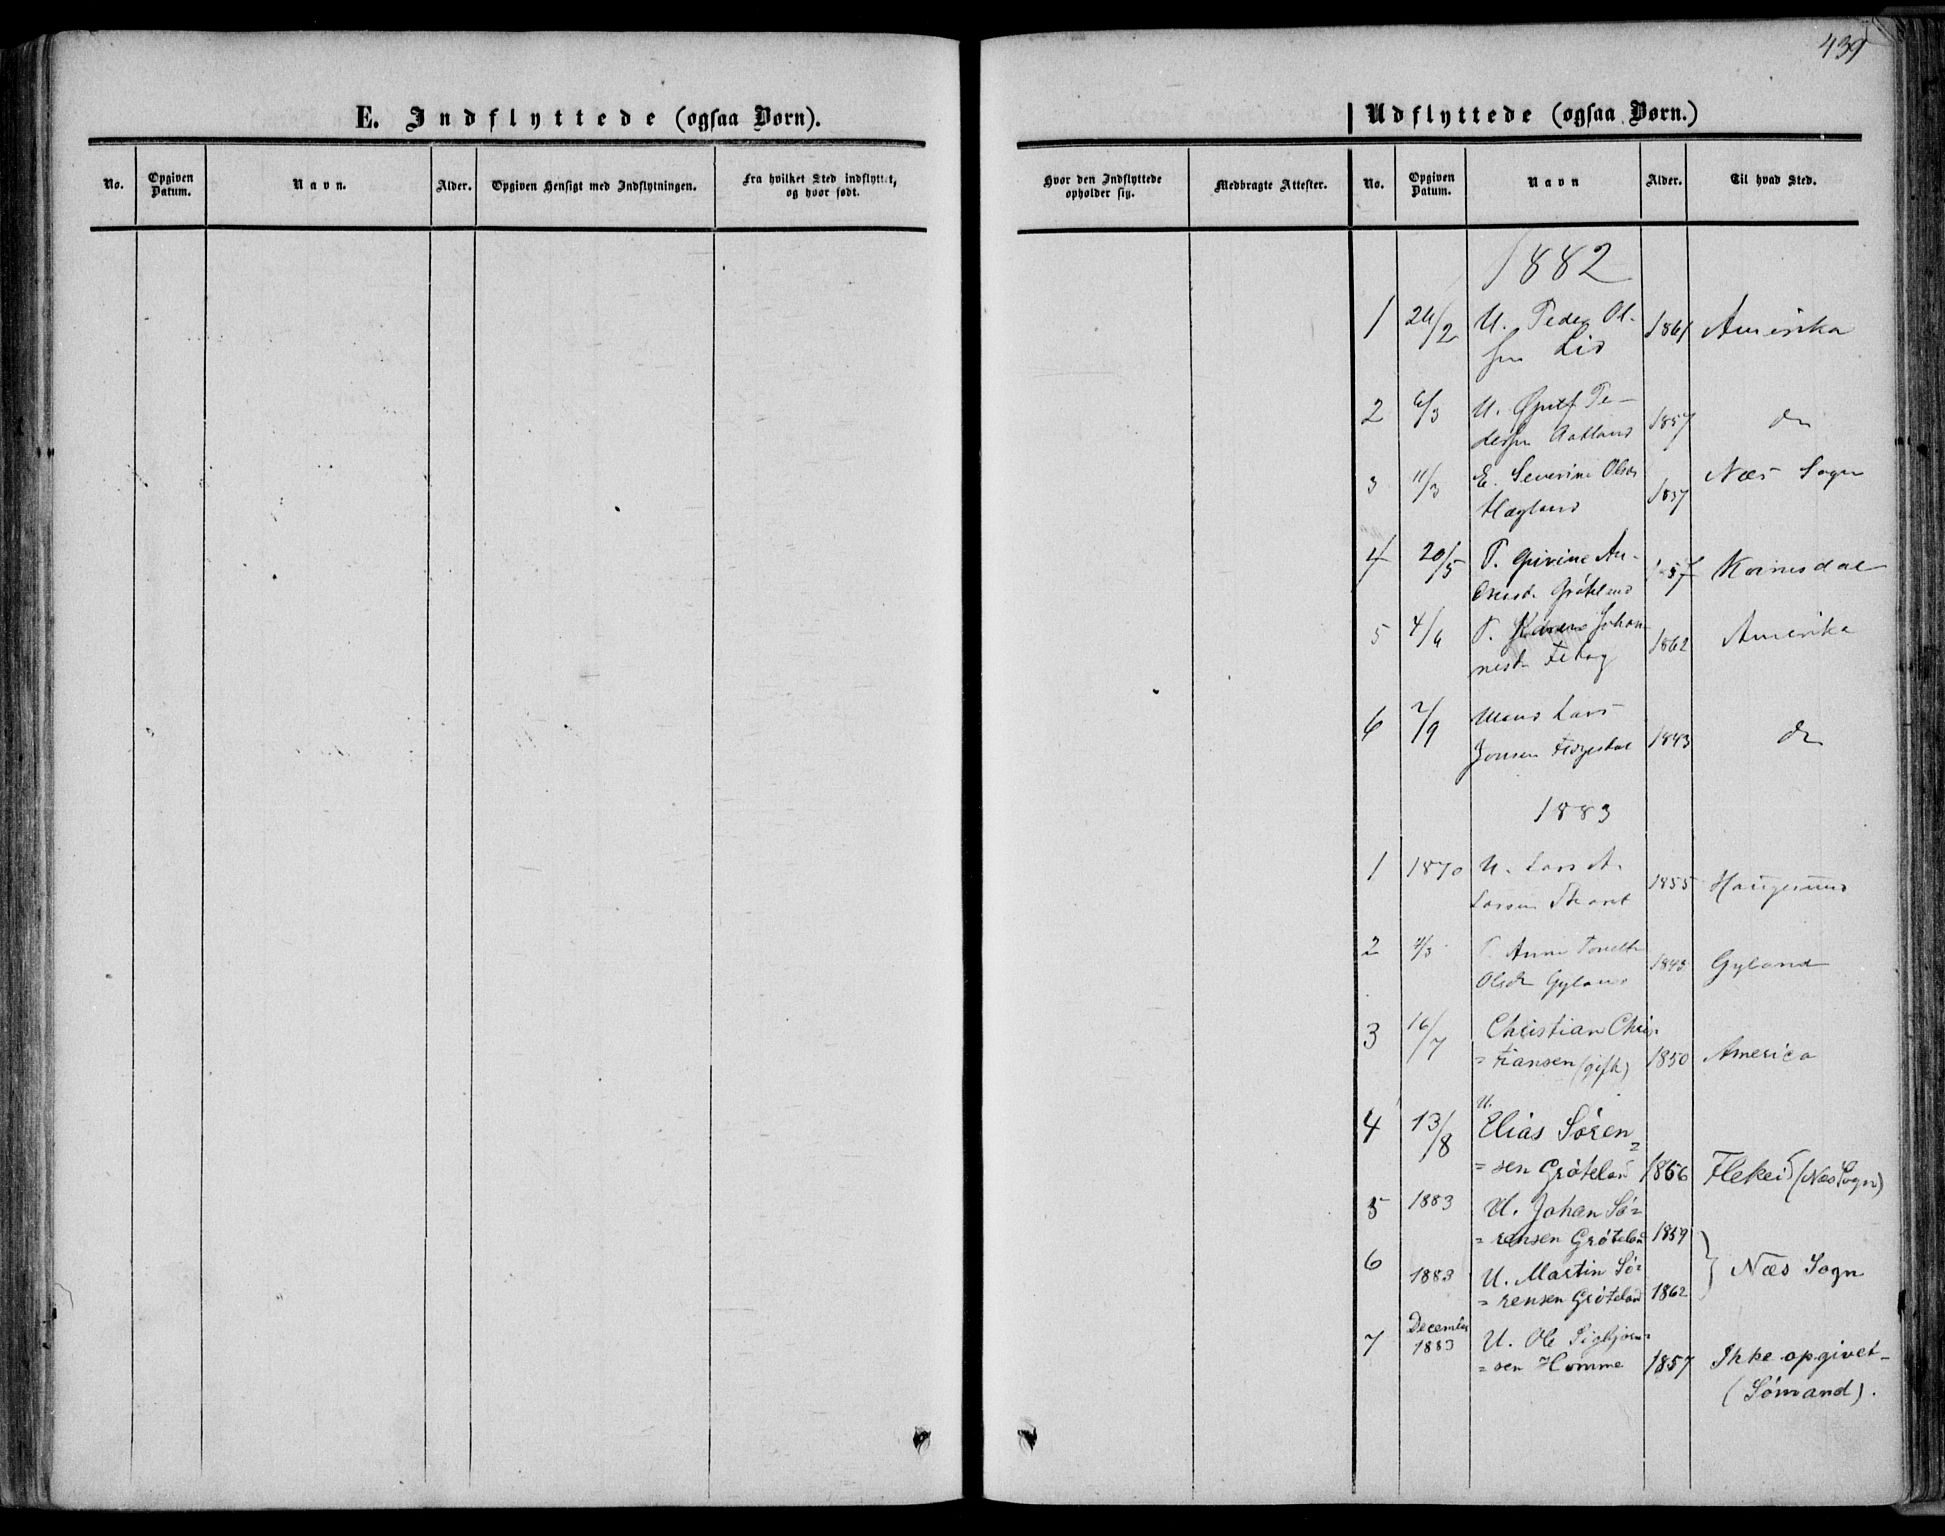 439
E. Indflyttede (ogsaa Børn).
Udflyttede (ogsaa Børn.)
No.
Opgiven Datum.
Navn.
Alder.
Opgiven Hensigt med Indflytningen.
Fra hvilket Sted indflyttet, og hvor født.
Hvor den Indflyttede opholder sig.
Medbragte Attester.
No.
Opgiven Datum.
Navn
Alder.
Til hvad Sted.
1882
1 24/2 U. Peder Ol-
sen Lid 1861 Amerika
2 6/3 U. Pe-
dersen Aatland 1857 do
3 11/3 E. Severine Olsdr
Hægland 1837 Næs Sogn
4 20/5 P. An-
Grøteland 57
5 4/6 P. Karen Johan-
nesdr 1862 Amerika
6 2/9 Lars
Jonsen 1843 do
1883
1 1870 U. Lars A.
Larsen 1855 Haugesund
2 4/3 P. Anne Tonette
Olsdr Gyland 1843 Gyland
3 16/7 Christian Chris-
=tiansen (gift) 1850 America
4 13/8 U. Elias Søren=
=sen Grøteland 1856 Flekei (Næs Sogn)
5 1883 U. Johan Sø=
=rensen Grøteland 1859
6 1883 U. Martin Sø=
=rensen Grøteland 1862 } Næs Sogn
7 December 1883 U. Ole Sigbjørn=
=sen Homme 1857 Ikke opgivet-
(Sømand).